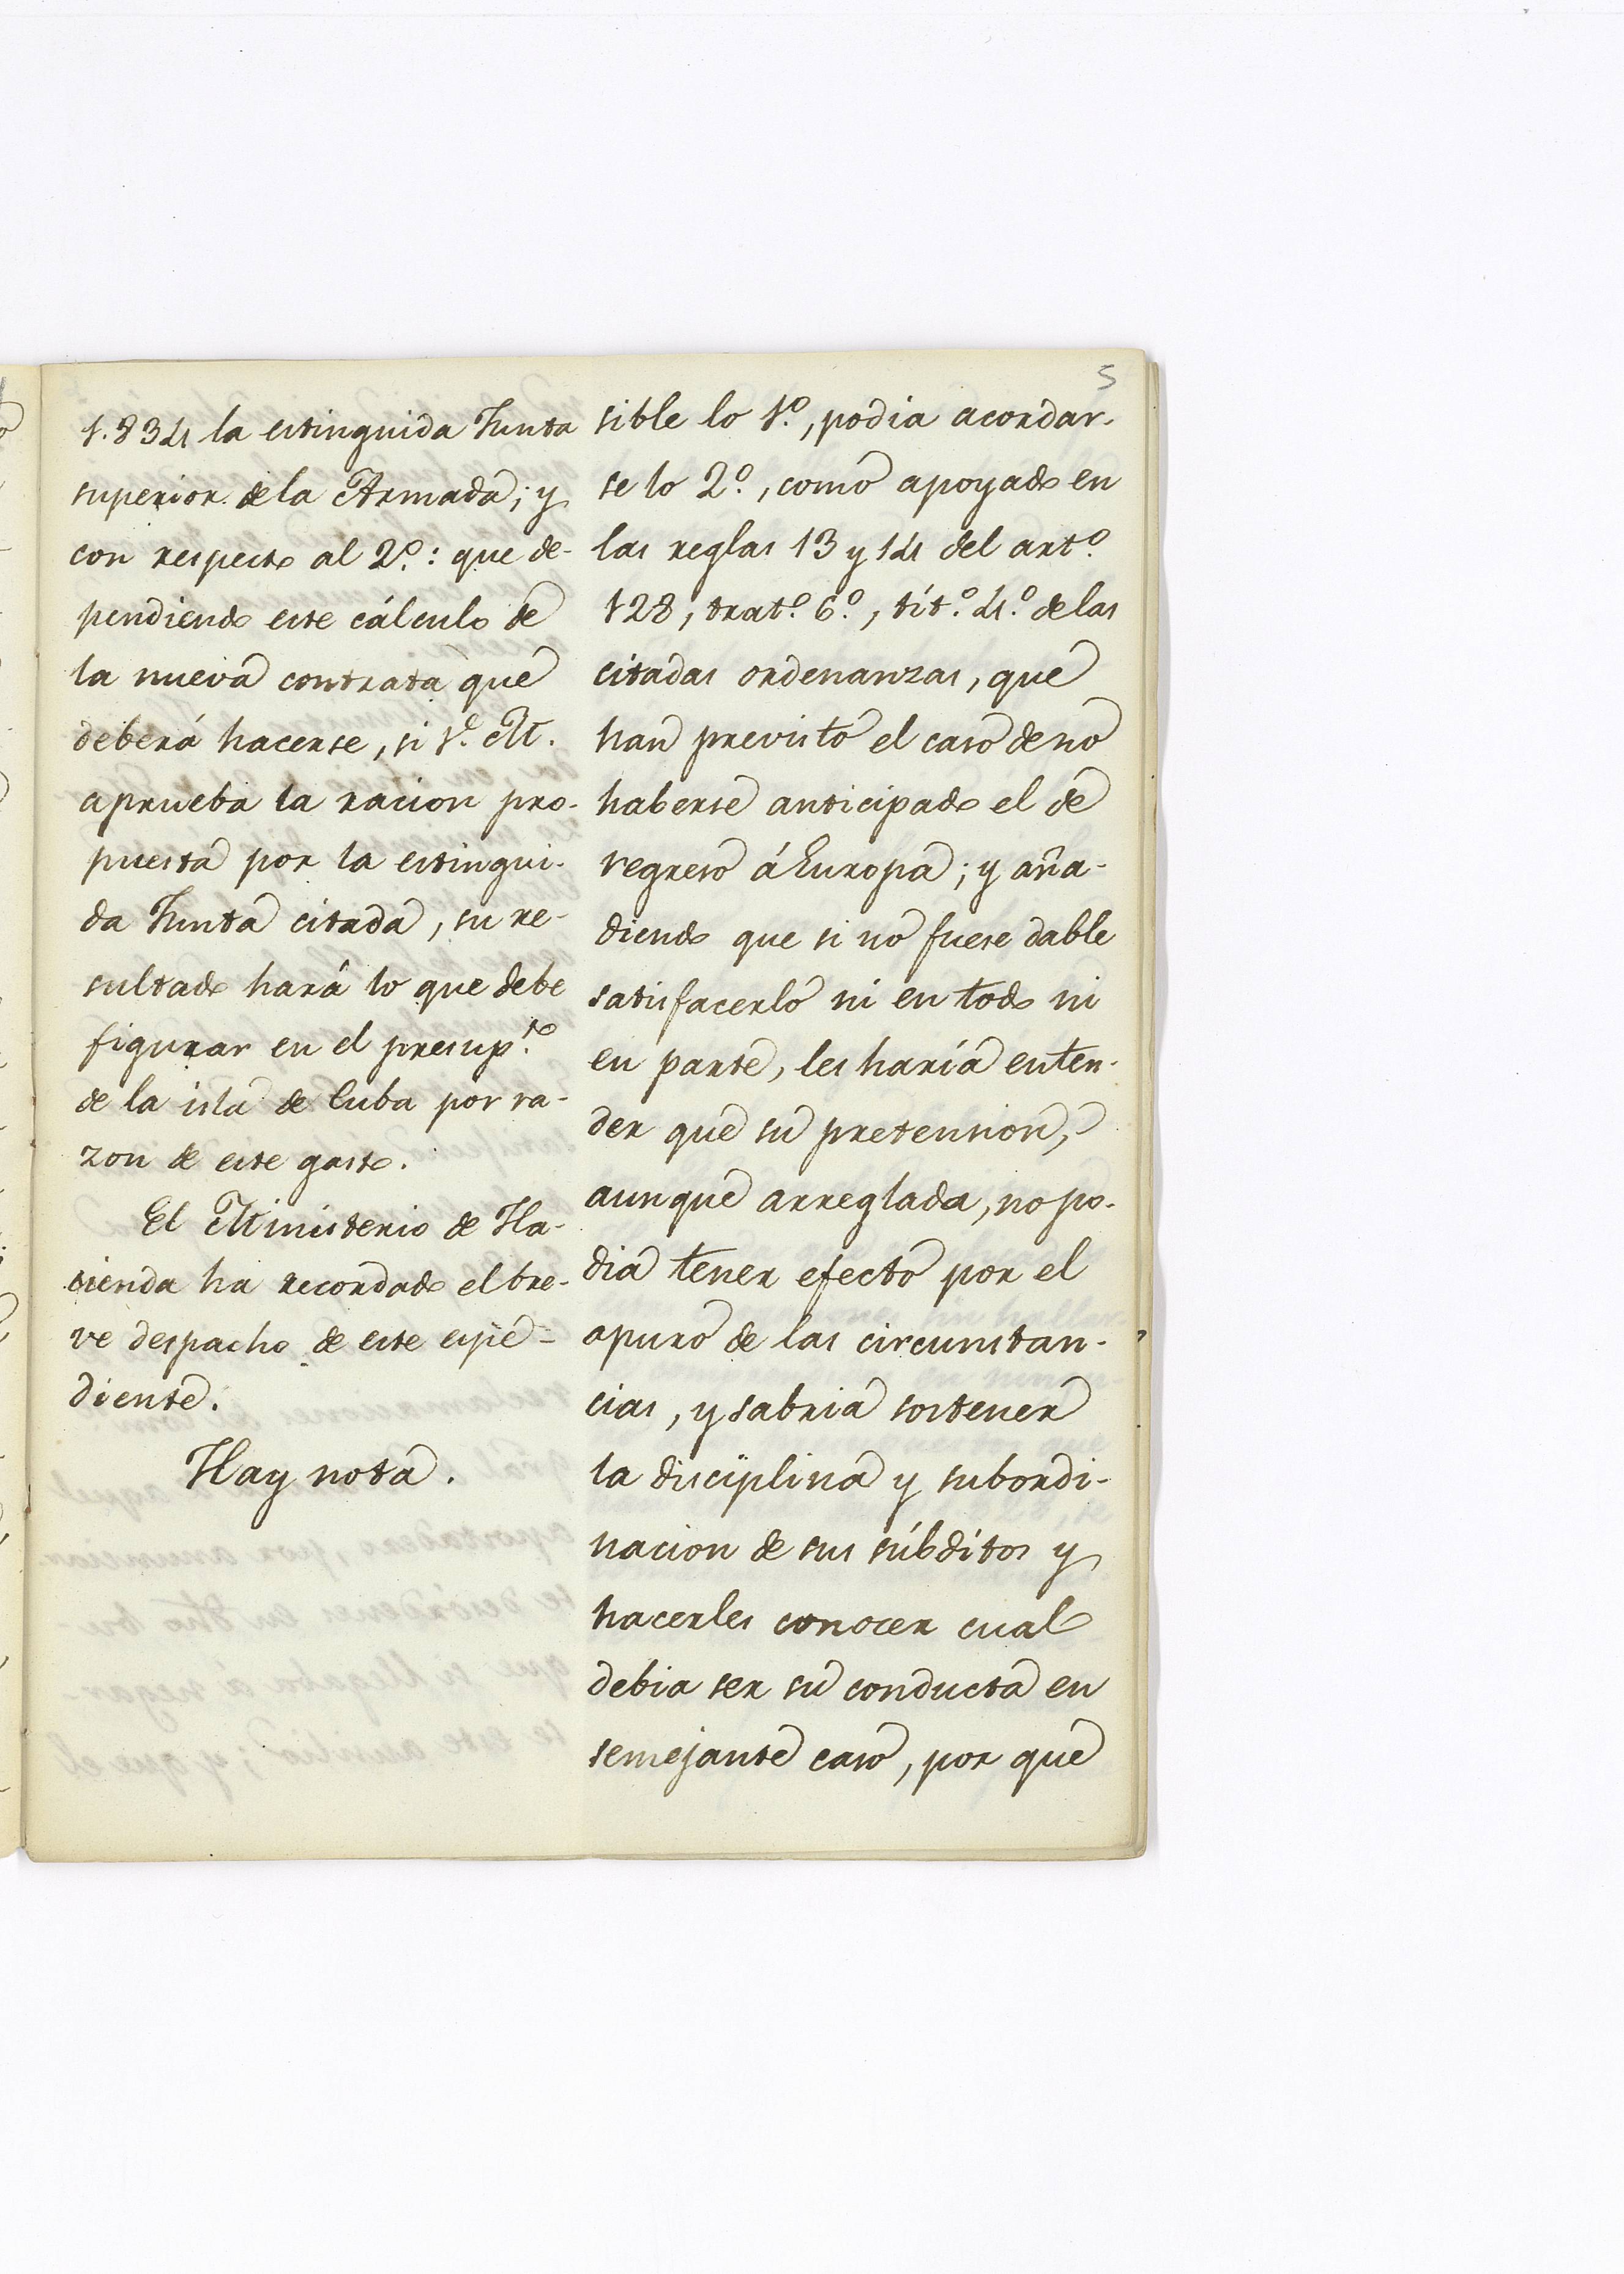 5
1.834 la estinguida Junta
superior de la Armada; y
con respecto al 2.º: que de-
pendiendo este cálculo de
la nueva contrata que
deberá hacerse, si S. M.
aprueba la racion pro-
puesta por la estingui-
da Junta citada, su re-
sultado hará lo que debe
figurar en el presup.to
de la isla de Cuba por ra-
zon de este gasto.
El Ministerio de Ha-
cienda ha recordado el bre-
ve despacho de este espe-
diente.
Hay nota.
sible lo 1.º, podia acordar-
se lo 2.º, como apoyado en
las reglas 13 y 14 del art.º
128, trat.º 6.º, tít.º 4.º de las
citadas ordenanzas, que
han previsto el caso de no
haberse anticipado el de
regreso á Europa; y aña-
diendo que si no fuese dable
satisfacerlo ni en todo ni
en parte, les haría enten-
der que su pretension,
aunque arreglada, no po-
dia tener efecto por el
apuro de las circunstan-
cias, y sabria sostener
la disciplina y subordi-
nacion de sus súbditos y
hacerles conocer cual
debia ser su conducta en
semejante caso, por que